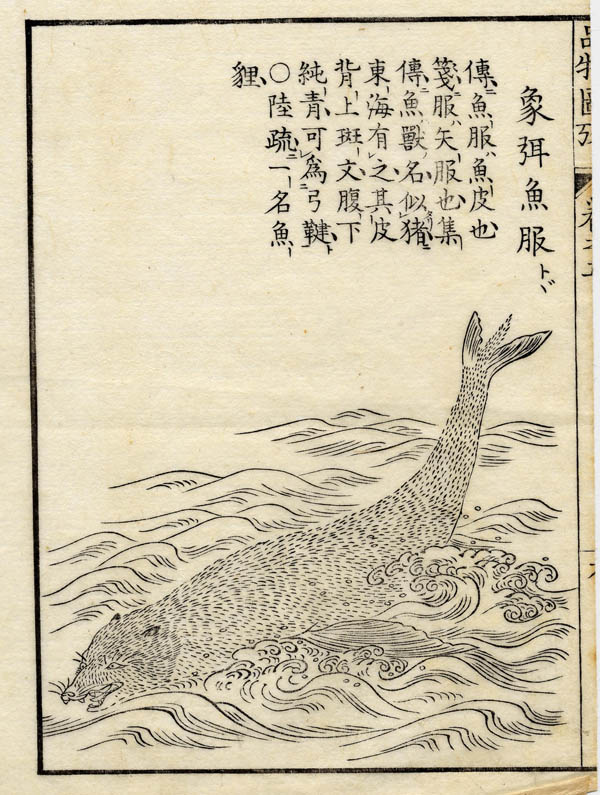 象弭魚服 トヾ
傳魚服魚皮也
箋服矢服也集
傳魚獸名似猪
東海有之其皮
背上斑文腹下
純青可爲弓鞬
○陸疏一名魚
貍
品物圖攷
卷之五